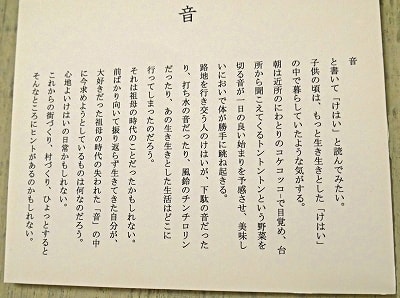 音
音
と書いて「けはい」と読んでみたい。
子供の頃は、もっと生き生きとした「けはい」
の中で暮らしていたような気がする。
朝は近所のにわとりのコケコッコーで目覚め、台
所から聞こえてくるトントントンという野菜を
切る音が一日の良い始まりを予感させ、美味し
いにおいで体が勝手に跳ね起きる。
路地を行き交う人のけはいが、下駄の音だった
り、打ち水の音だったり、風鈴のチンチロリン
だったり、あの生き生きとした生活はどこに
行ってしまったのだろう。
それは祖母の時代のことだったかもしれない。
前ばかり向いて振り返らず生きてきた自分が、
大好きだった祖母の時代の失われた「音」の中
に今求めようとしているものは何なのだろう。
心地よいけはいの日常かもしれない。
これからの街づくり、村づくり、ひょっとすると
そんなところにヒントがあるのかもしれない。